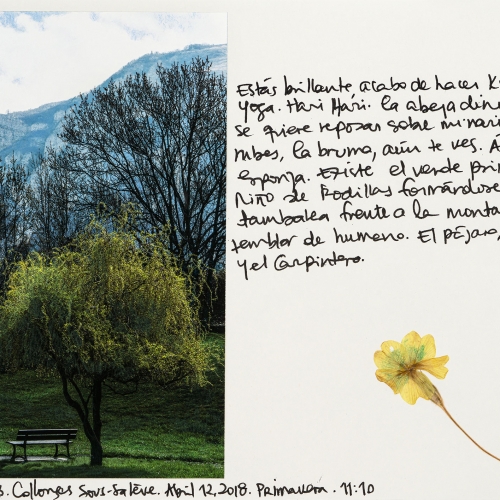 Estás brillante, acabo de hacer K
Yoga. Hari Hari. la abeja
se quiere reposar sobre mi nari
nubes, la bruma, aún te ves. A
esponja. Existe el verde prim
Niño de Rodillas formándose
tambalea frente a la monta
temblor de humano. El pájaro,
y el Carpintero.
Collonges sous-salève. Abril 12, 2018. Primavera. 11:10